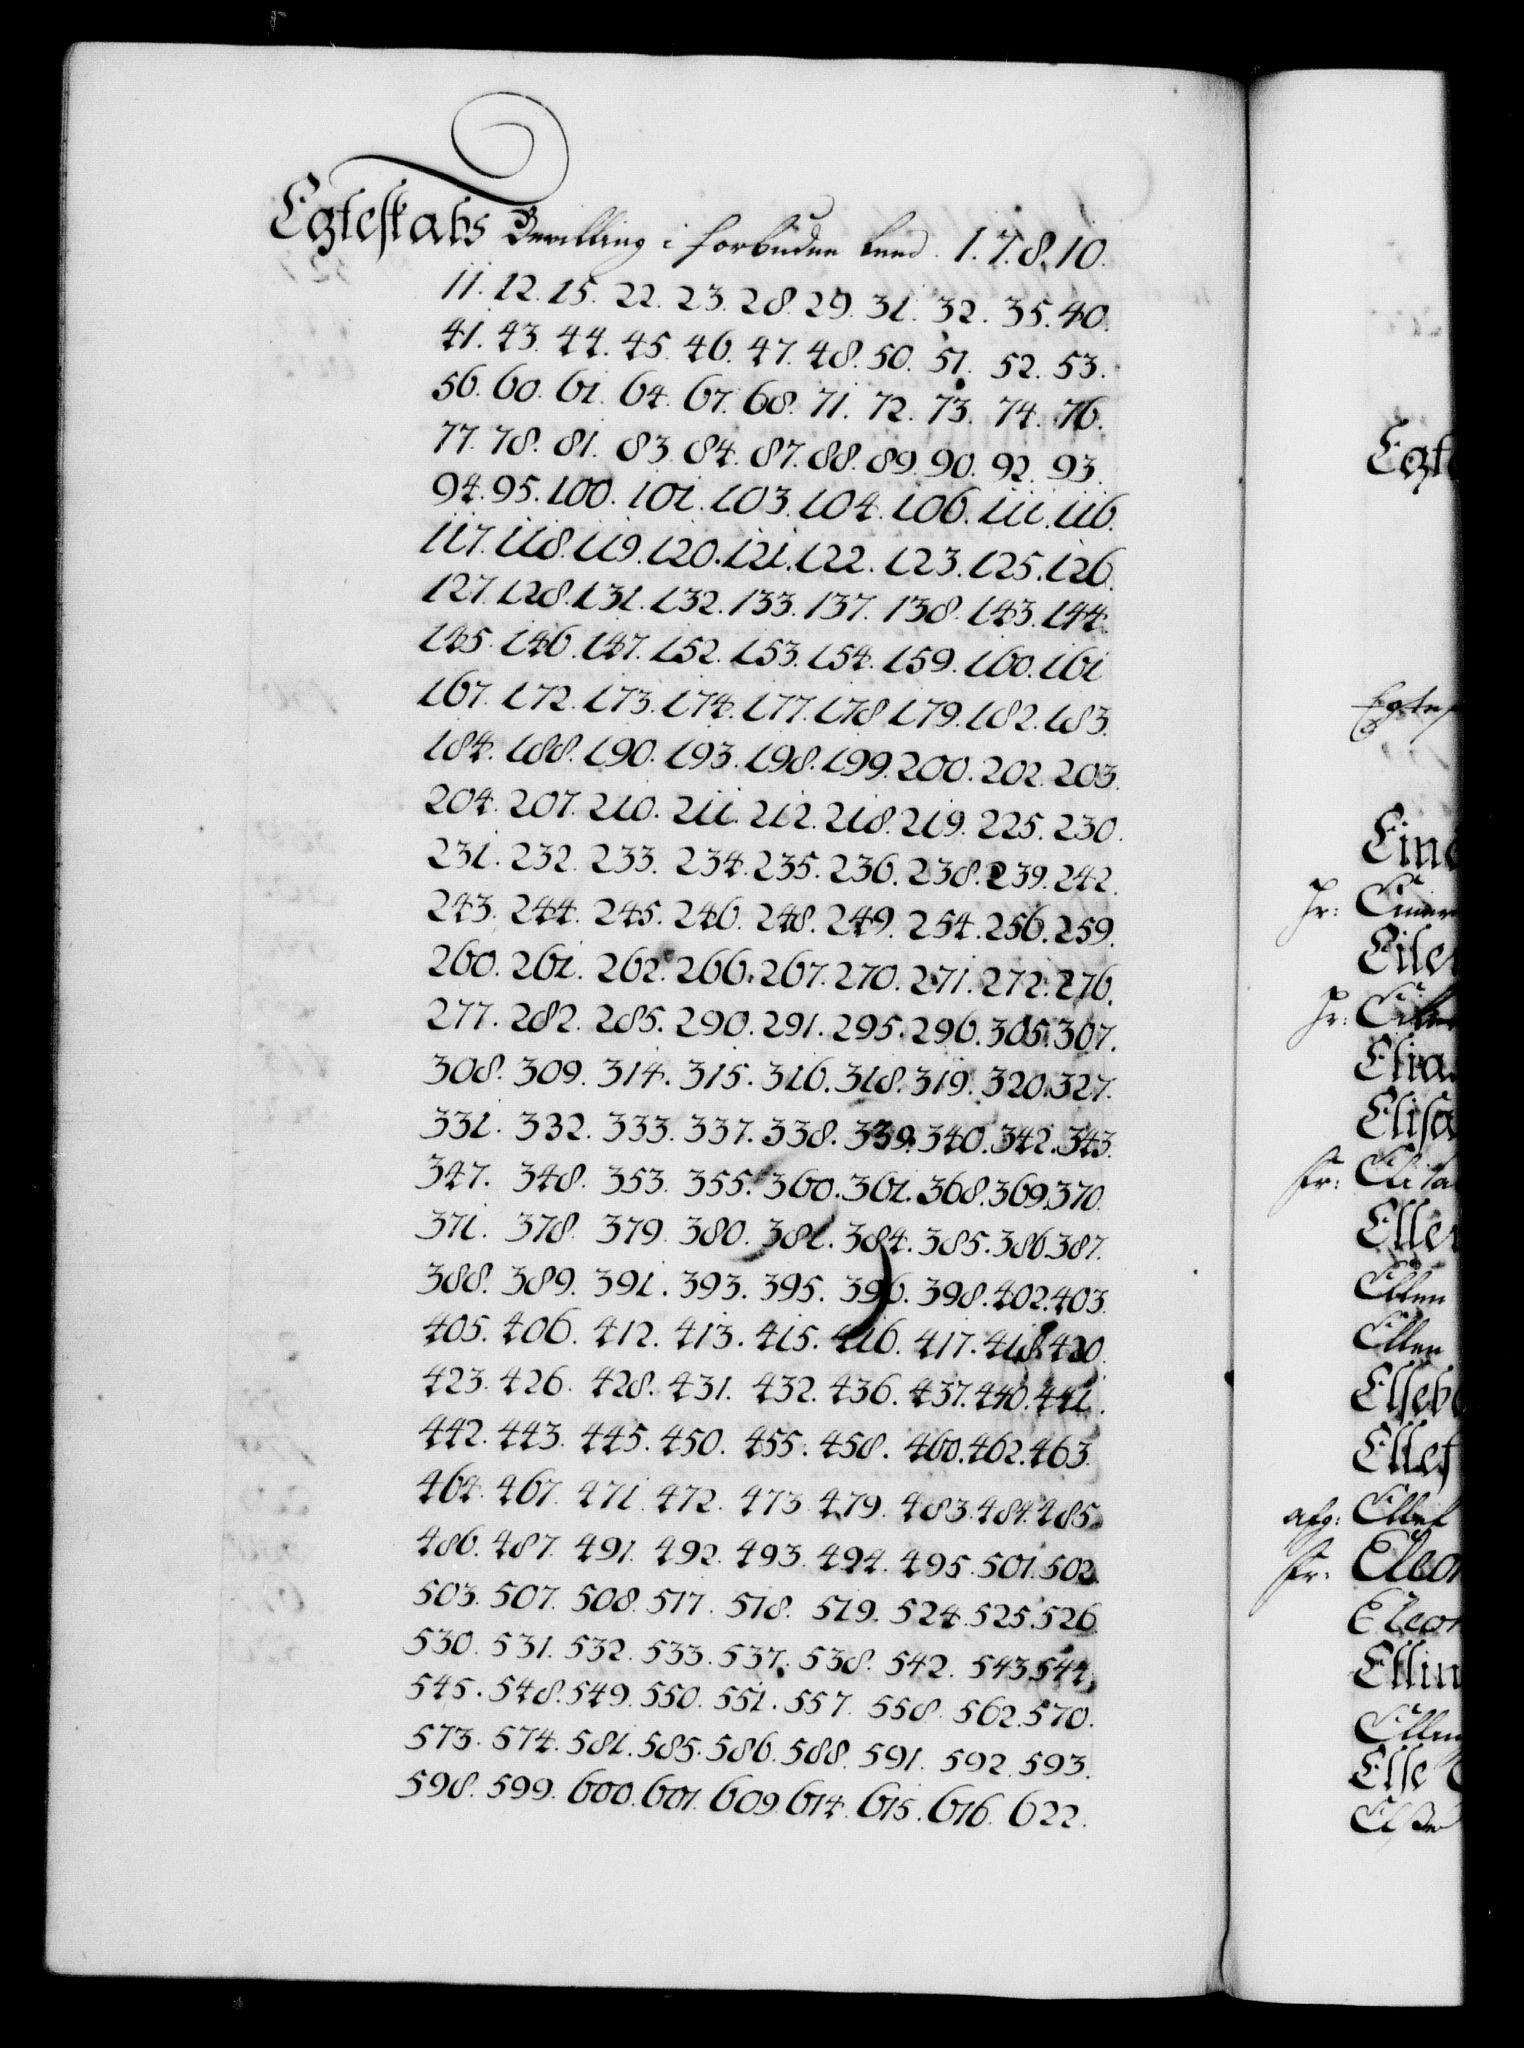 Egteskabs Bevilling i forbuden Leed. 1. 7. 8. 10.
11. 12. 15. 22. 23. 28. 29. 31. 32. 35. 40.
41. 43. 44. 45. 46. 47. 48. 50. 51. 52. 53.
56. 60. 61. 64. 67. 68. 71. 72. 73. 74. 76.
77. 78. 81. 83. 84. 87. 88. 89. 90. 92. 93.
94. 95. 100. 101. 103. 104. 106. 111. 116.
117. 118. 119. 120. 121. 122. 123. 125. 126.
127. 128. 131. 132. 133. 137. 138. 143. 144.
145. 146. 147. 152. 153. 154. 159. 160. 161
167. 172. 173. 174. 177. 178 179. 182. 183.
184. 188. 190. 193. 198. 199. 200. 202. 203.
204. 207. 210. 211. 212. 218. 219. 225. 230.
231. 232. 233. 234. 235. 236. 238. 239. 242.
243. 244. 245. 246. 248. 249. 254. 256. 259.
260. 261. 262. 266. 267. 270. 271. 272. 276.
277. 282. 285. 290. 291. 295. 296. 305. 307.
308. 309. 314. 315. 316. 318. 319. 320. 327.
331. 332. 333. 337. 338. 339. 340. 342. 343.
347. 348. 353. 355. 360. 361. 368. 369. 370.
371. 378. 379. 380. 381. 384. 385. 386. 387.
388. 389. 391. 393. 395. 396. 398. 402. 403.
405. 406. 412. 413. 415. 416. 417. 418. 420.
423. 426. 428. 431. 432. 436. 437. 440. 441.
442. 443. 445. 450. 455. 458. 460. 462. 463.
464. 467. 471. 472. 473. 479. 483. 484. 485.
486. 487. 491. 492. 493. 494. 495. 501. 502.
503. 507. 508. 517. 518. 519. 524. 525. 526.
530. 531. 532. 533. 537. 538. 542. 543. 544.
545. 548. 549. 550. 551. 557. 558. 562. 570.
573. 574. 581. 585. 586. 588. 591. 592. 593.
598. 599. 600. 601. 609. 614. 615. 616. 622.
Egte
Eind
Eiler
Elia
Elisa
Eller
Ellen
Ellen
Elseb
Ellef
afg: Ellef
Fr: Eleon
Eleon
Ellin
Else